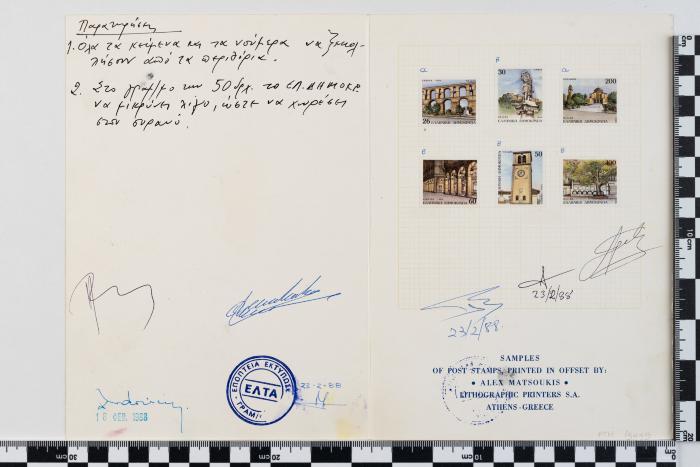 Παρατηρήσεις
1. Όλα τα κείμενα και τα νούμερα να ξεκολ-
λήσουν από τα περιθώρια.
2. Στο γραμ/μο των 50 δρχ. το ΕΛ. ΔΗΜΟΚΡ.
να μικρύνει λίγο, ώστε να χωρέσει
στον ουρανό.
α
β
α
26 ΕΛΛΗΝΙΚΗ ΔΗΜΟΚΡΑΤΙΑ
30
ΕΛΛΗΝΙΚΗ ΔΗΜΟΚΡΑΤΙΑ
200
ΕΛΛΗΝΙΚΗ ΔΗΜΟΚΡΑΤΙΑ
β
β
β
60
ΕΛΛΗΝΙΚΗ ΔΗΜΟΚΡΑΤΙΑ
50
ΕΛΛΗΝΙΚΗ ΔΗΜΟΚΡΑΤΙΑ
400
ΕΛΛΗΝΙΚΗ ΔΗΜΟΚΡΑΤΙΑ
23/2/88
23/2/88.
ΕΠΟΠΤΕΙΑ ΕΚΤΥΠΩΣΕ
ΕΛΤΑ
ΓΡΑΜ
23-2-88
16 ΦΕΒ. 1988
SAMPLES
OF POST STAMPS, PRINTED IN OFFSET BY:
• ALEX MATSOUKIS •
LITHOGRAPHIC PRINTERS S.A.
ATHENS-GREECE
cm
10
20
10
20
30